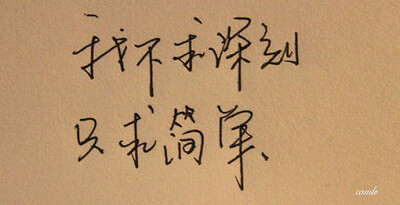 我不求深刻
只求简单、
comle